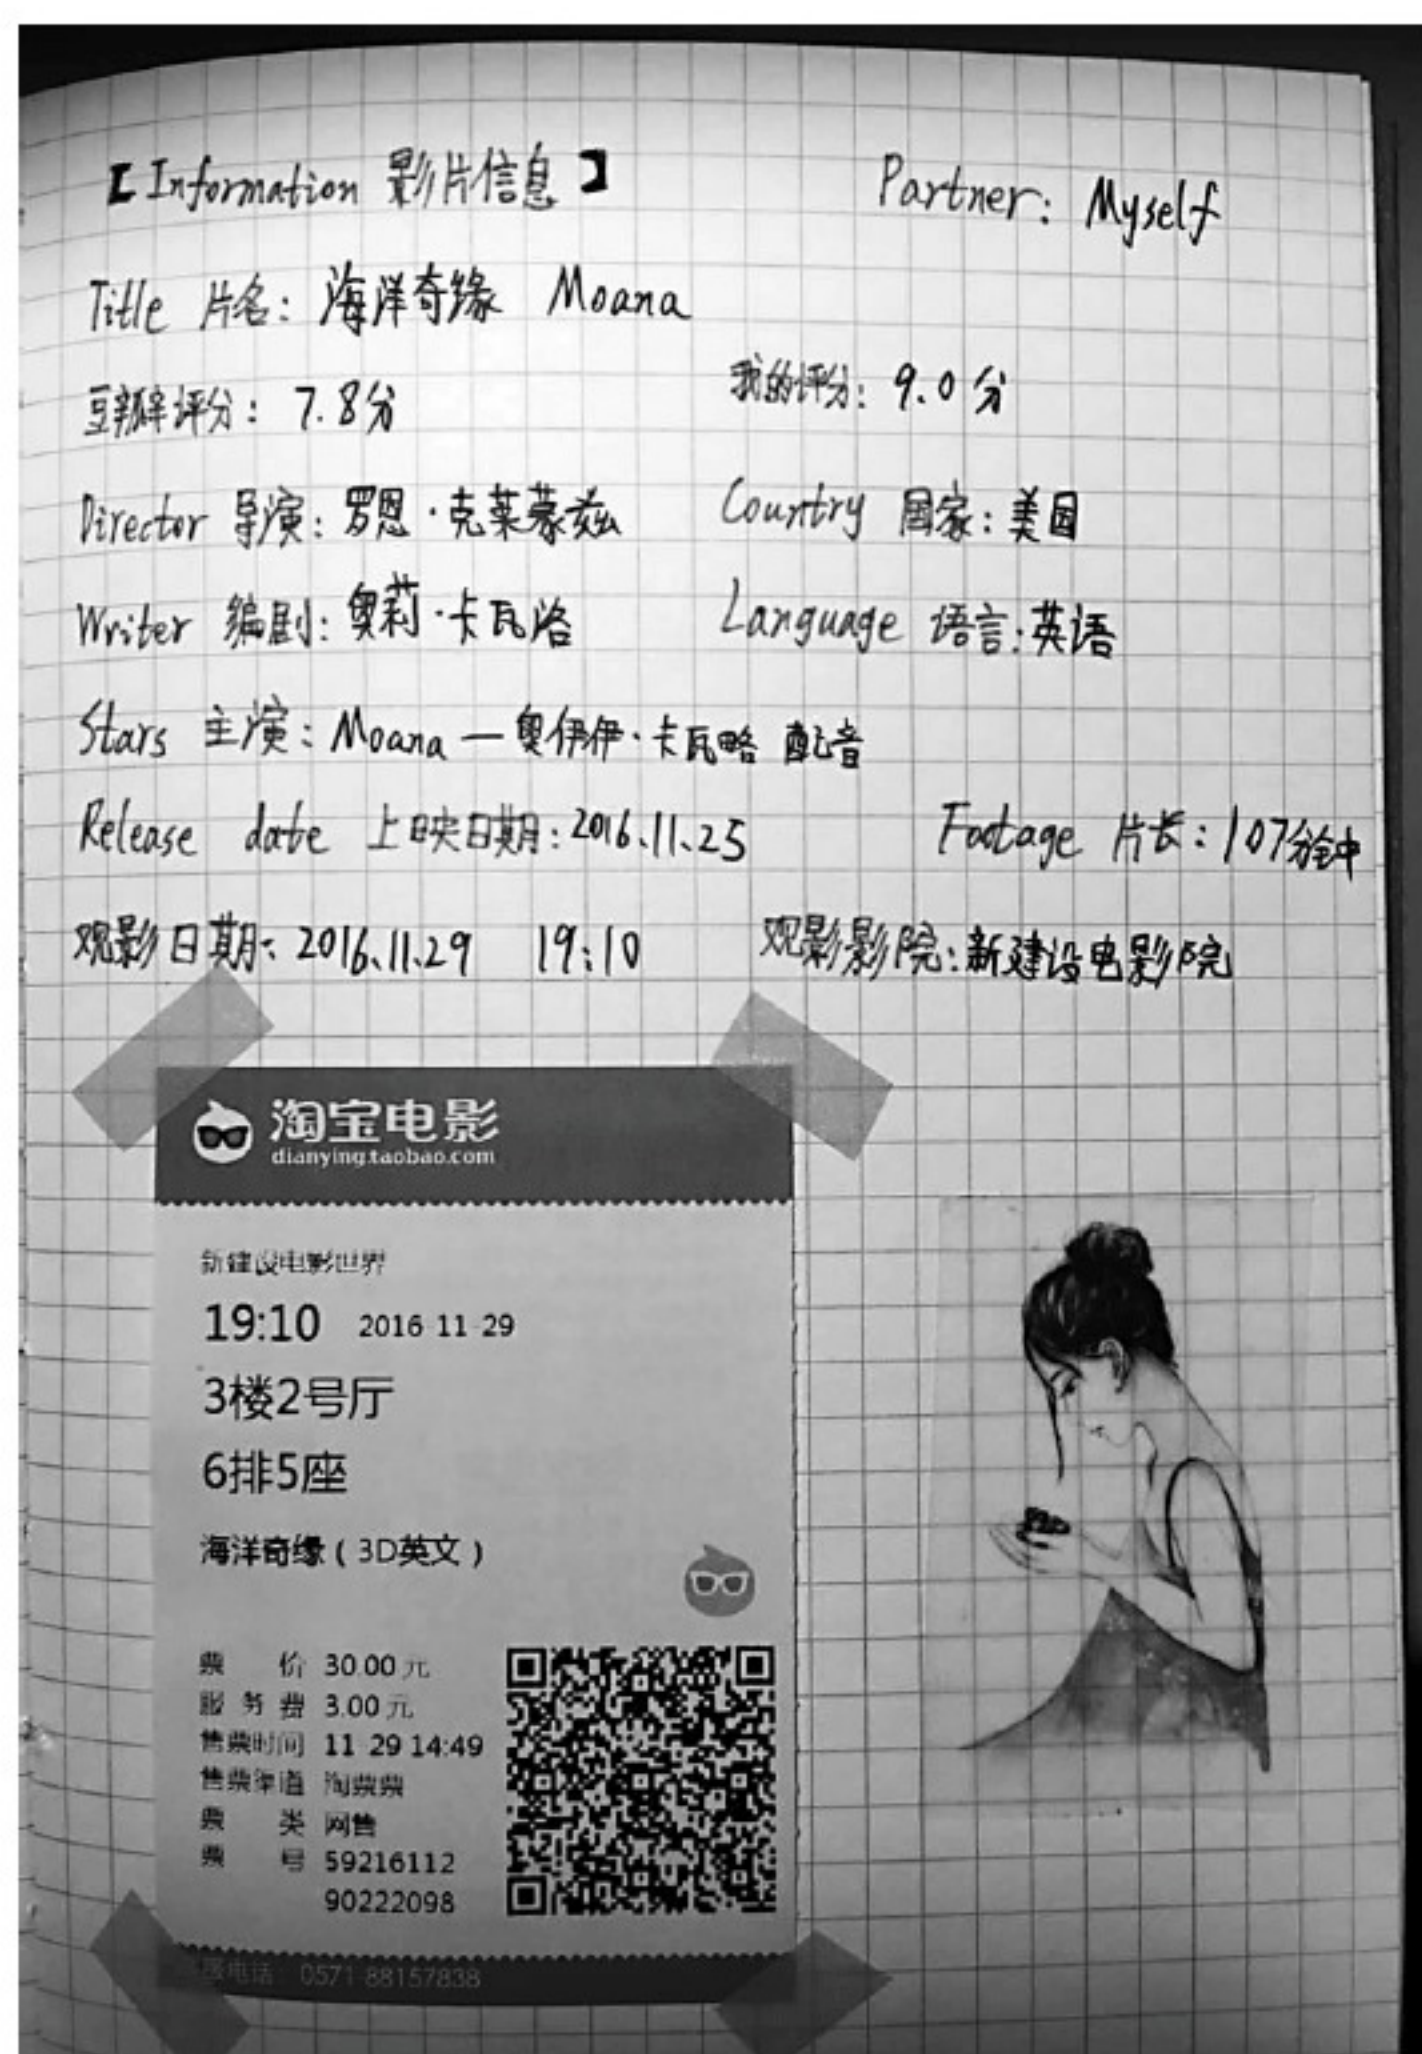 【Information 影片信息】 Partner: Myself
Title 片名: 海洋奇缘 Moana
豆瓣评分: 7.8分 我的评分: 9.0分
Director 导演: 罗恩·克莱蒙兹 Country 国家: 美国
Writer 编剧: 奥莉·卡瓦洛 Language 语言: 英语
Stars 主演: Moana — 奥伊伊·卡瓦略 配音
Release date 上映日期: 2016.11.25 Footage 片长: 107分钟
观影日期: 2016.11.29 19:10 观影影院: 新建设电影院
淘宝电影
dianying.taobao.com
新建设电影世界
19:10 2016 11 29
3楼2号厅
6排5座
海洋奇缘(3D英文)
票价 30.00元
服务费 3.00元
售票时间 11 29 14:49
售票渠道 淘票票
票类 网售
票号 59216112
90222098
电话: 0571 88157838